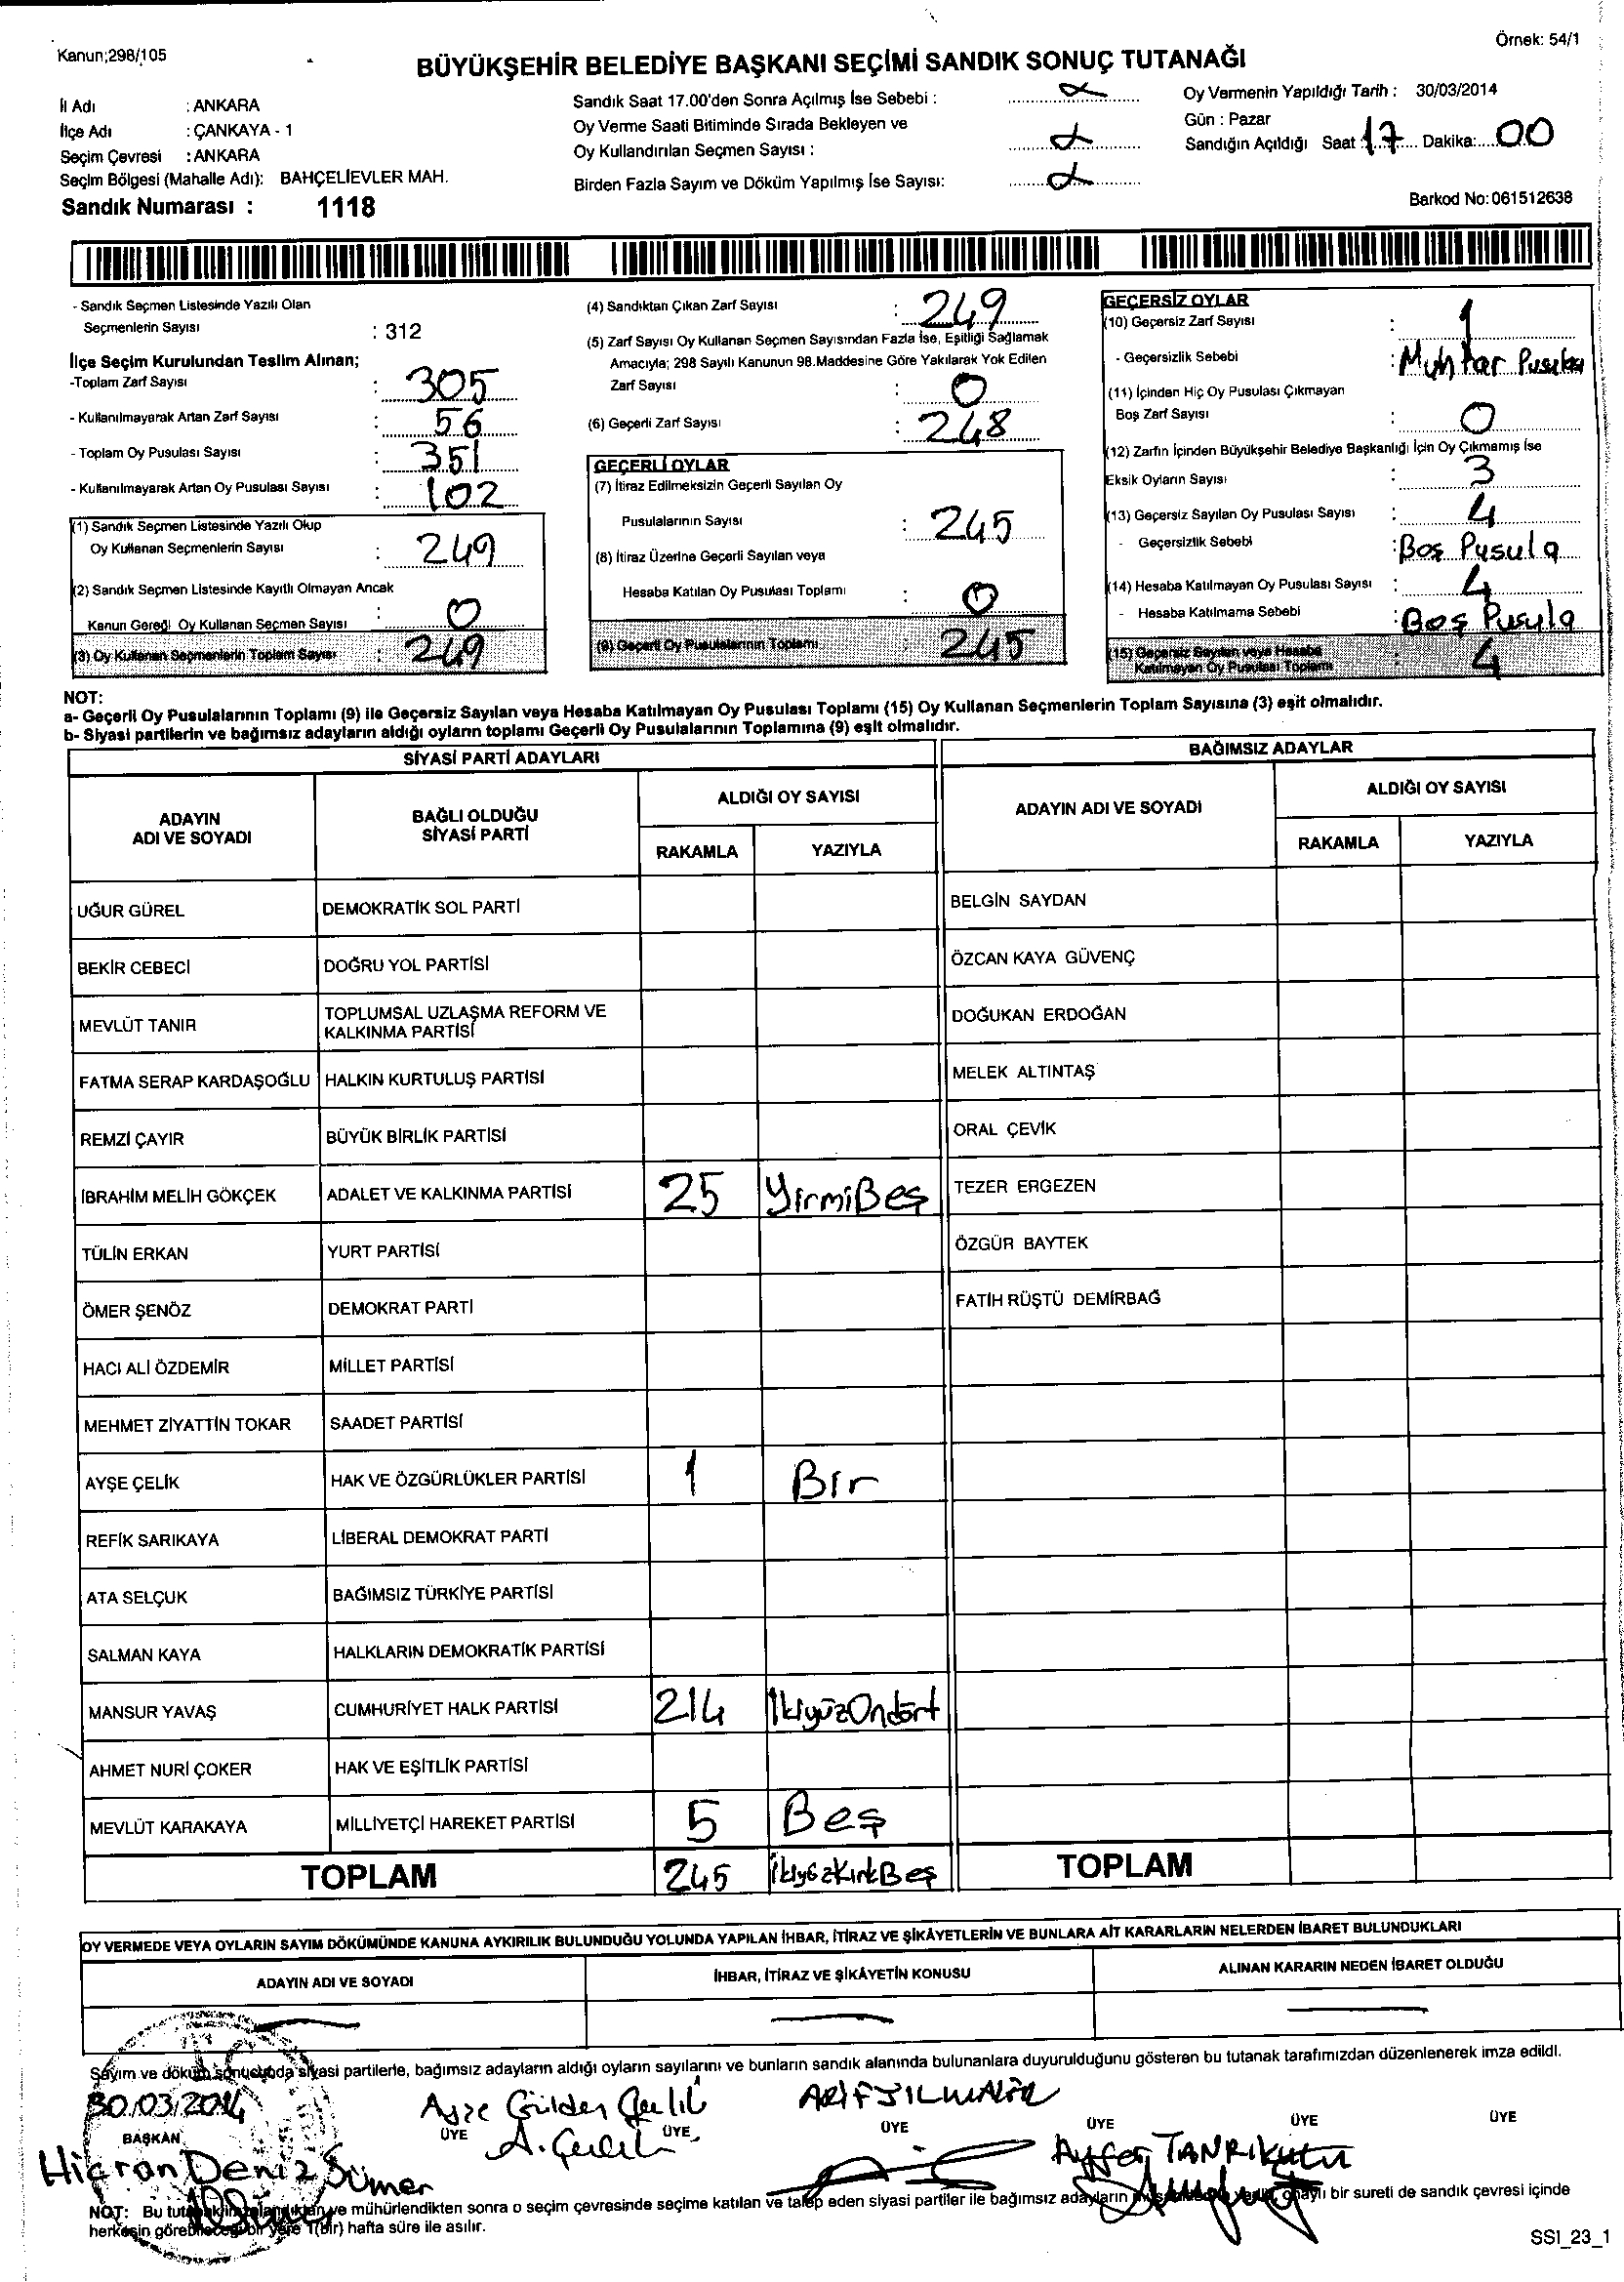 Kanun;298/105
Örnek: 54/1
BÜYÜKŞEHİR BELEDİYE BAŞKANI SEÇİMİ SANDIK SONUÇ TUTANAĞI
İl Adı : ANKARA
İlçe Adı : ÇANKAYA - 1
Seçim Çevresi : ANKARA
Seçim Bölgesi (Mahalle Adı): BAHÇELİEVLER MAH.
Sandık Numarası : 1118
Sandık Saat 17.00'den Sonra Açılmış İse Sebebi :
Oy Verme Saati Bitiminde Sırada Bekleyen ve
Oy Kullandırılan Seçmen Sayısı :
Birden Fazla Sayım ve Döküm Yapılmış İse Sayısı:
Oy Vermenin Yapıldığı Tarih : 30/03/2014
Gün : Pazar
Sandığın Açıldığı Saat : 17 Dakika: 00
Barkod No: 061512638
- Sandık Seçmen Listesinde Yazılı Olan
Seçmenlerin Sayısı : 312
İlçe Seçim Kurulundan Teslim Alınan;
-Toplam Zarf Sayısı : 305
- Kullanılmayarak Artan Zarf Sayısı : 56
- Toplam Oy Pusulası Sayısı : 351
- Kullanılmayarak Artan Oy Pusulası Sayısı : 102
(1) Sandık Seçmen Listesinde Yazılı Olup
Oy Kullanan Seçmenlerin Sayısı : 249
(2) Sandık Seçmen Listesinde Kayıtlı Olmayan Ancak
Kanun Gereği Oy Kullanan Seçmen Sayısı : 0
(3) Oy Kullanan Seçmenlerin Toplam Sayısı : 249
(4) Sandıktan Çıkan Zarf Sayısı : 249
(5) Zarf Sayısı Oy Kullanan Seçmen Sayısından Fazla İse, Eşitliği Sağlamak
Amacıyla; 298 Sayılı Kanunun 98.Maddesine Göre Yakılarak Yok Edilen
Zarf Sayısı : 0
(6) Geçerli Zarf Sayısı : 248
GEÇERLİ OYLAR
(7) İtiraz Edilmeksizin Geçerli Sayılan Oy
Pusulalarının Sayısı : 245
(8) İtiraz Üzerine Geçerli Sayılan veya
Hesaba Katılan Oy Pusulası Toplamı : 0
(9) Geçerli Oy Pusulalarının Toplamı : 245
GEÇERSİZ OYLAR
(10) Geçersiz Zarf Sayısı : 1
- Geçersizlik Sebebi : Muhtar Pusulası
(11) İçinden Hiç Oy Pusulası Çıkmayan
Boş Zarf Sayısı : 0
(12) Zarfın İçinden Büyükşehir Belediye Başkanlığı İçin Oy Çıkmamış İse
Eksik Oyların Sayısı : 3
(13) Geçersiz Sayılan Oy Pusulası Sayısı : 4
- Geçersizlik Sebebi : Boş Pusula
(14) Hesaba Katılmayan Oy Pusulası Sayısı : 4
- Hesaba Katılmama Sebebi : Boş Pusula
(15) Geçersiz Sayılan veya Hesaba
Katılmayan Oy Pusulası Toplamı : 4
NOT:
a- Geçerli Oy Pusulalarının Toplamı (9) ile Geçersiz Sayılan veya Hesaba Katılmayan Oy Pusulası Toplamı (15) Oy Kullanan Seçmenlerin Toplam Sayısına (3) eşit olmalıdır.
b- Siyasi partilerin ve bağımsız adayların aldığı oyların toplamı Geçerli Oy Pusulalarının Toplamına (9) eşit olmalıdır.
SİYASİ PARTİ ADAYLARI
BAĞIMSIZ ADAYLAR
ADAYIN
ADI VE SOYADI
BAĞLI OLDUĞU
SİYASİ PARTİ
ALDIĞI OY SAYISI
RAKAMLA YAZIYLA
ADAYIN ADI VE SOYADI
ALDIĞI OY SAYISI
RAKAMLA YAZIYLA
UĞUR GÜREL DEMOKRATİK SOL PARTİ BELGİN SAYDAN
BEKİR CEBECİ DOĞRU YOL PARTİSİ ÖZCAN KAYA GÜVENÇ
MEVLÜT TANIR TOPLUMSAL UZLAŞMA REFORM VE
KALKINMA PARTİSİ DOĞUKAN ERDOĞAN
FATMA SERAP KARDAŞOĞLU HALKIN KURTULUŞ PARTİSİ MELEK ALTINTAŞ
REMZİ ÇAYIR BÜYÜK BİRLİK PARTİSİ ORAL ÇEVİK
İBRAHİM MELİH GÖKÇEK ADALET VE KALKINMA PARTİSİ 25 YirmiBeş TEZER ERGEZEN
TÜLİN ERKAN YURT PARTİSİ ÖZGÜR BAYTEK
ÖMER ŞENÖZ DEMOKRAT PARTİ FATİH RÜŞTÜ DEMİRBAĞ
HACI ALİ ÖZDEMİR MİLLET PARTİSİ
MEHMET ZİYATTİN TOKAR SAADET PARTİSİ
AYŞE ÇELİK HAK VE ÖZGÜRLÜKLER PARTİSİ 1 Bir
REFİK SARIKAYA LİBERAL DEMOKRAT PARTİ
ATA SELÇUK BAĞIMSIZ TÜRKİYE PARTİSİ
SALMAN KAYA HALKLARIN DEMOKRATİK PARTİSİ
MANSUR YAVAŞ CUMHURİYET HALK PARTİSİ 214 İkiyüzOndört
AHMET NURİ ÇOKER HAK VE EŞİTLİK PARTİSİ
MEVLÜT KARAKAYA MİLLİYETÇİ HAREKET PARTİSİ 5 Beş
TOPLAM 245 İkiyüzKırkBeş TOPLAM
OY VERMEDE VEYA OYLARIN SAYIM DÖKÜMÜNDE KANUNA AYKIRILIK BULUNDUĞU YOLUNDA YAPILAN İHBAR, İTİRAZ VE ŞİKÂYETLERİN VE BUNLARA AİT KARARLARIN NELERDEN İBARET BULUNDUKLARI
ADAYIN ADI VE SOYADI İHBAR, İTİRAZ VE ŞİKÂYETİN KONUSU ALINAN KARARIN NEDEN İBARET OLDUĞU
Sayım ve döküm sonucunda siyasi partilerle, bağımsız adayların aldığı oyların sayılarını ve bunların sandık alanında bulunanlara duyurulduğunu gösteren bu tutanak tarafımızdan düzenlenerek imza edildi.
30.03.2014 Ayşe Gülden Çelik ARİF
BAŞKAN ÜYE ÜYE ÜYE ÜYE ÜYE ÜYE
Hicran Deniz Sümer A. Çelik Ayfer TANRIKULU
NOT: Bu ve mühürlendikten sonra o seçim çevresinde seçime katılan ve talep eden siyasi partiler ile bağımsız adayların onaylı bir sureti de sandık çevresi içinde
herkesin görebileceği bir yere 1(bir) hafta süre ile asılır.
SSI_23_1